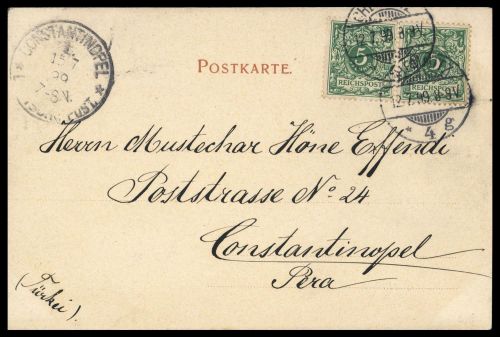 CONSTANTINOPEL 1
15/7
99
7-8.V.
POSTKARTE.
5
REICHSPOST
5
REICHSPOST
12.7.99.8-9V.
* 4 g.
Herrn Mustechar Höne Effendi
Poststrasse No. 24
Constantinopel
Pera
(Türkei).